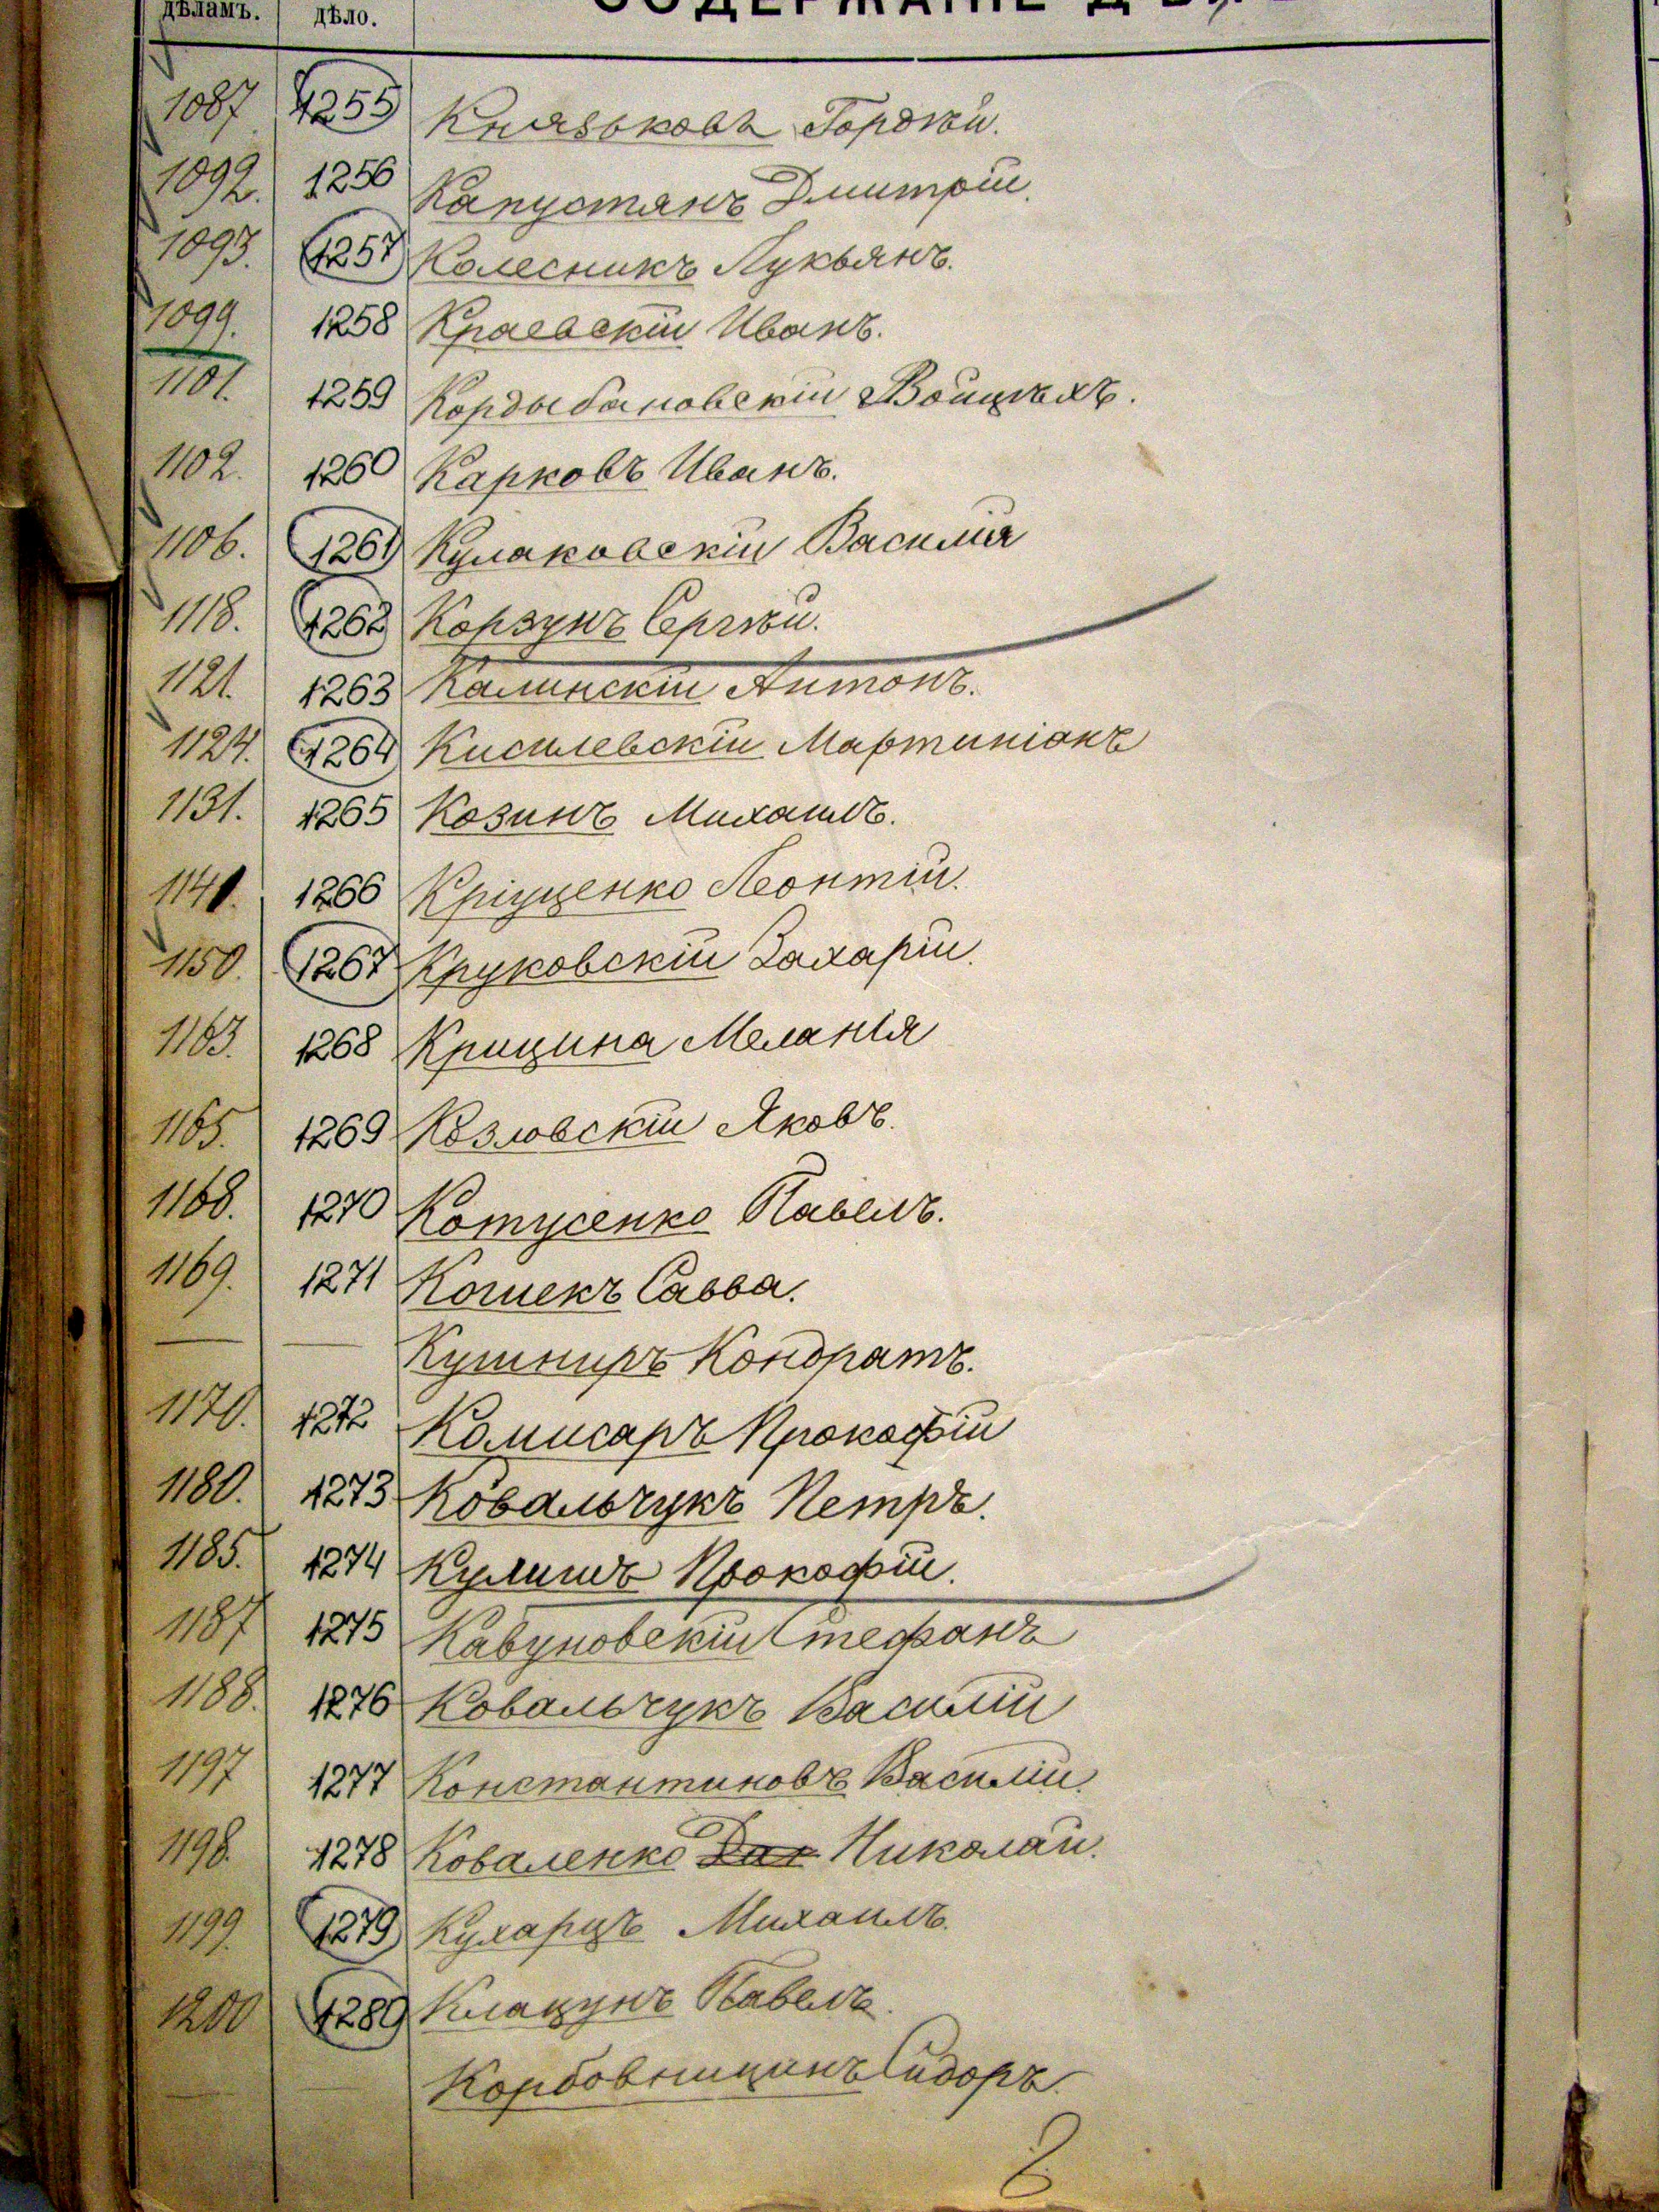 дѣламъ. дѣло. СОДЕРЖАНІЕ
1087 1255 Князьковъ Гордѣй.
1092. 1256 Капустянъ Дмитрій.
1093. 1257 Колесникъ Лукьянъ.
1099. 1258 Краевскій Иванъ.
1101. 1259 Кордыбановскій Войцѣхъ.
1102. 1260 Карковъ Иванъ.
1106. 1261 Кулаковскій Василій
1118. 1262 Корзунъ Сергѣй.
1121. 1263 Калинскій Антонъ.
1124. 1264 Кисилевскій Мартиніанъ
1131. 1265 Козинъ Михаилъ.
1141. 1266 Кріущенко Леонтій.
1150. 1267 Круковскій Захарій.
1163. 1268 Крицина Меланія
1165. 1269 Козловскій Яковъ.
1168. 1270 Котусенко Павелъ.
1169. 1271 Кошекъ Савва.
— — Кушниръ Кондратъ.
1170. 1272 Комисаръ Прокофій
1180. 1273 Ковальчукъ Петръ.
1185. 1274 Кулишъ Прокофій.
1187 1275 Кавуновскій Стефанъ
1188. 1276 Ковальчукъ Василій
1197 1277 Константиновъ Василій.
1198. 1278 Коваленко Николай.
1199. 1279 Кухарцъ Михаилъ.
1200 1280 Клацунъ Павелъ.
— — Корбовницинъ Сидоръ.